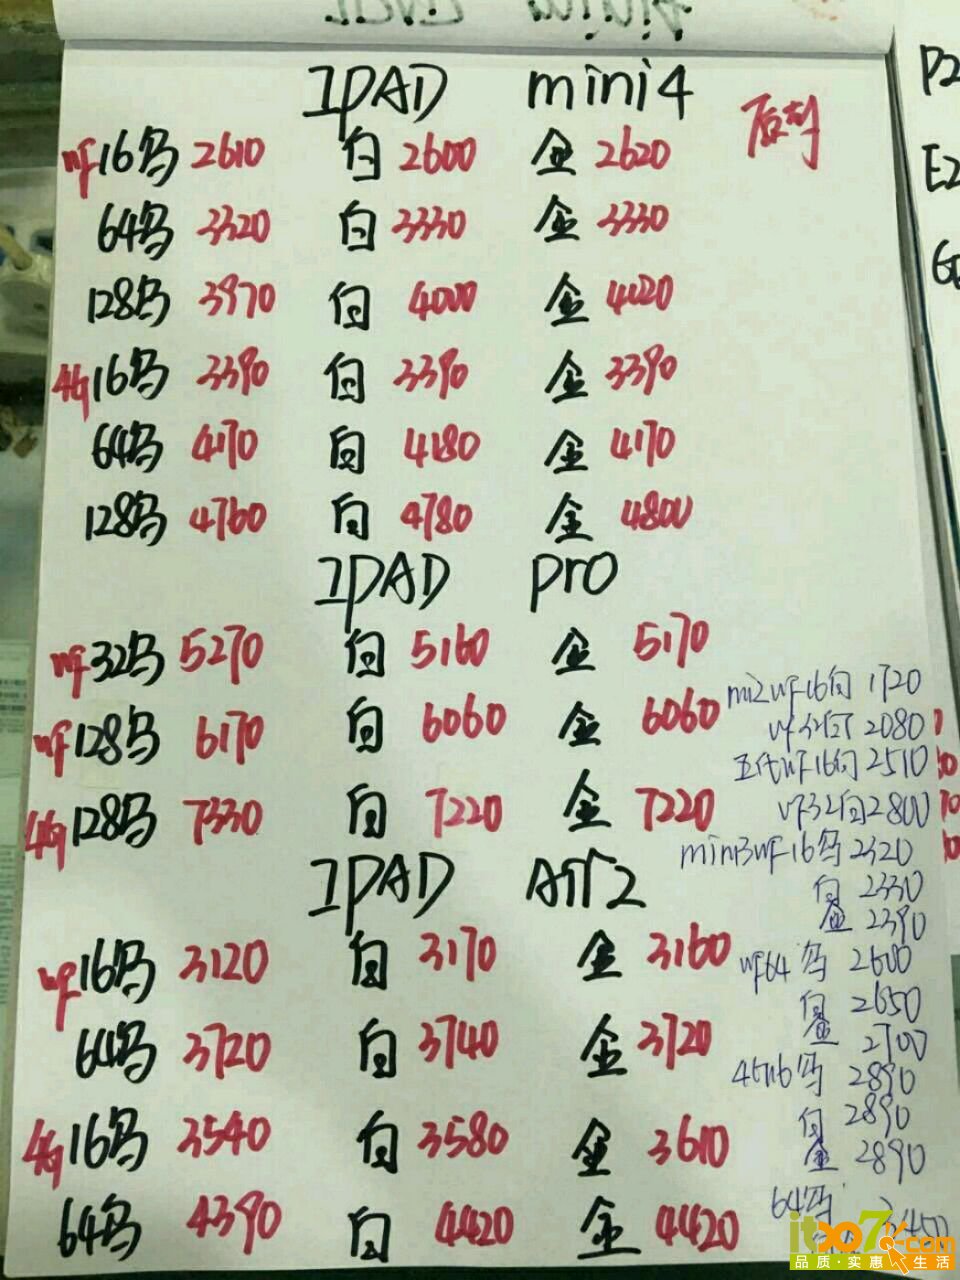 IPAD mini4
wf16马 2610 白 2600 金 2620
64马 3320 白 3330 金 3330
128马 3970 白 4000 金 4020
4G16马 3390 白 3390 金 3390
64马 4170 白 4180 金 4170
128马 4760 白 4780 金 4800
IPAD pro
wf32马 5270 白 5160 金 5170
wf128马 6170 白 6060 金 6060
4G128马 7330 白 7220 金 7220
IPAD AIr2
wf16马 3120 白 3170 金 3160
64马 3720 白 3740 金 3720
4G16马 3540 白 3580 金 3610
64马 4390 白 4420 金 4420
mi2wf16白 1720
2080
五代wf16白 2510
wf32白2800
mini3wf16马 2320
白 2330
金 2390
wf64马 2600
白 2650
金 2700
16马 2890
白 2890
金 2890
64马
P2
E2
it007.com
品质·实惠·生活